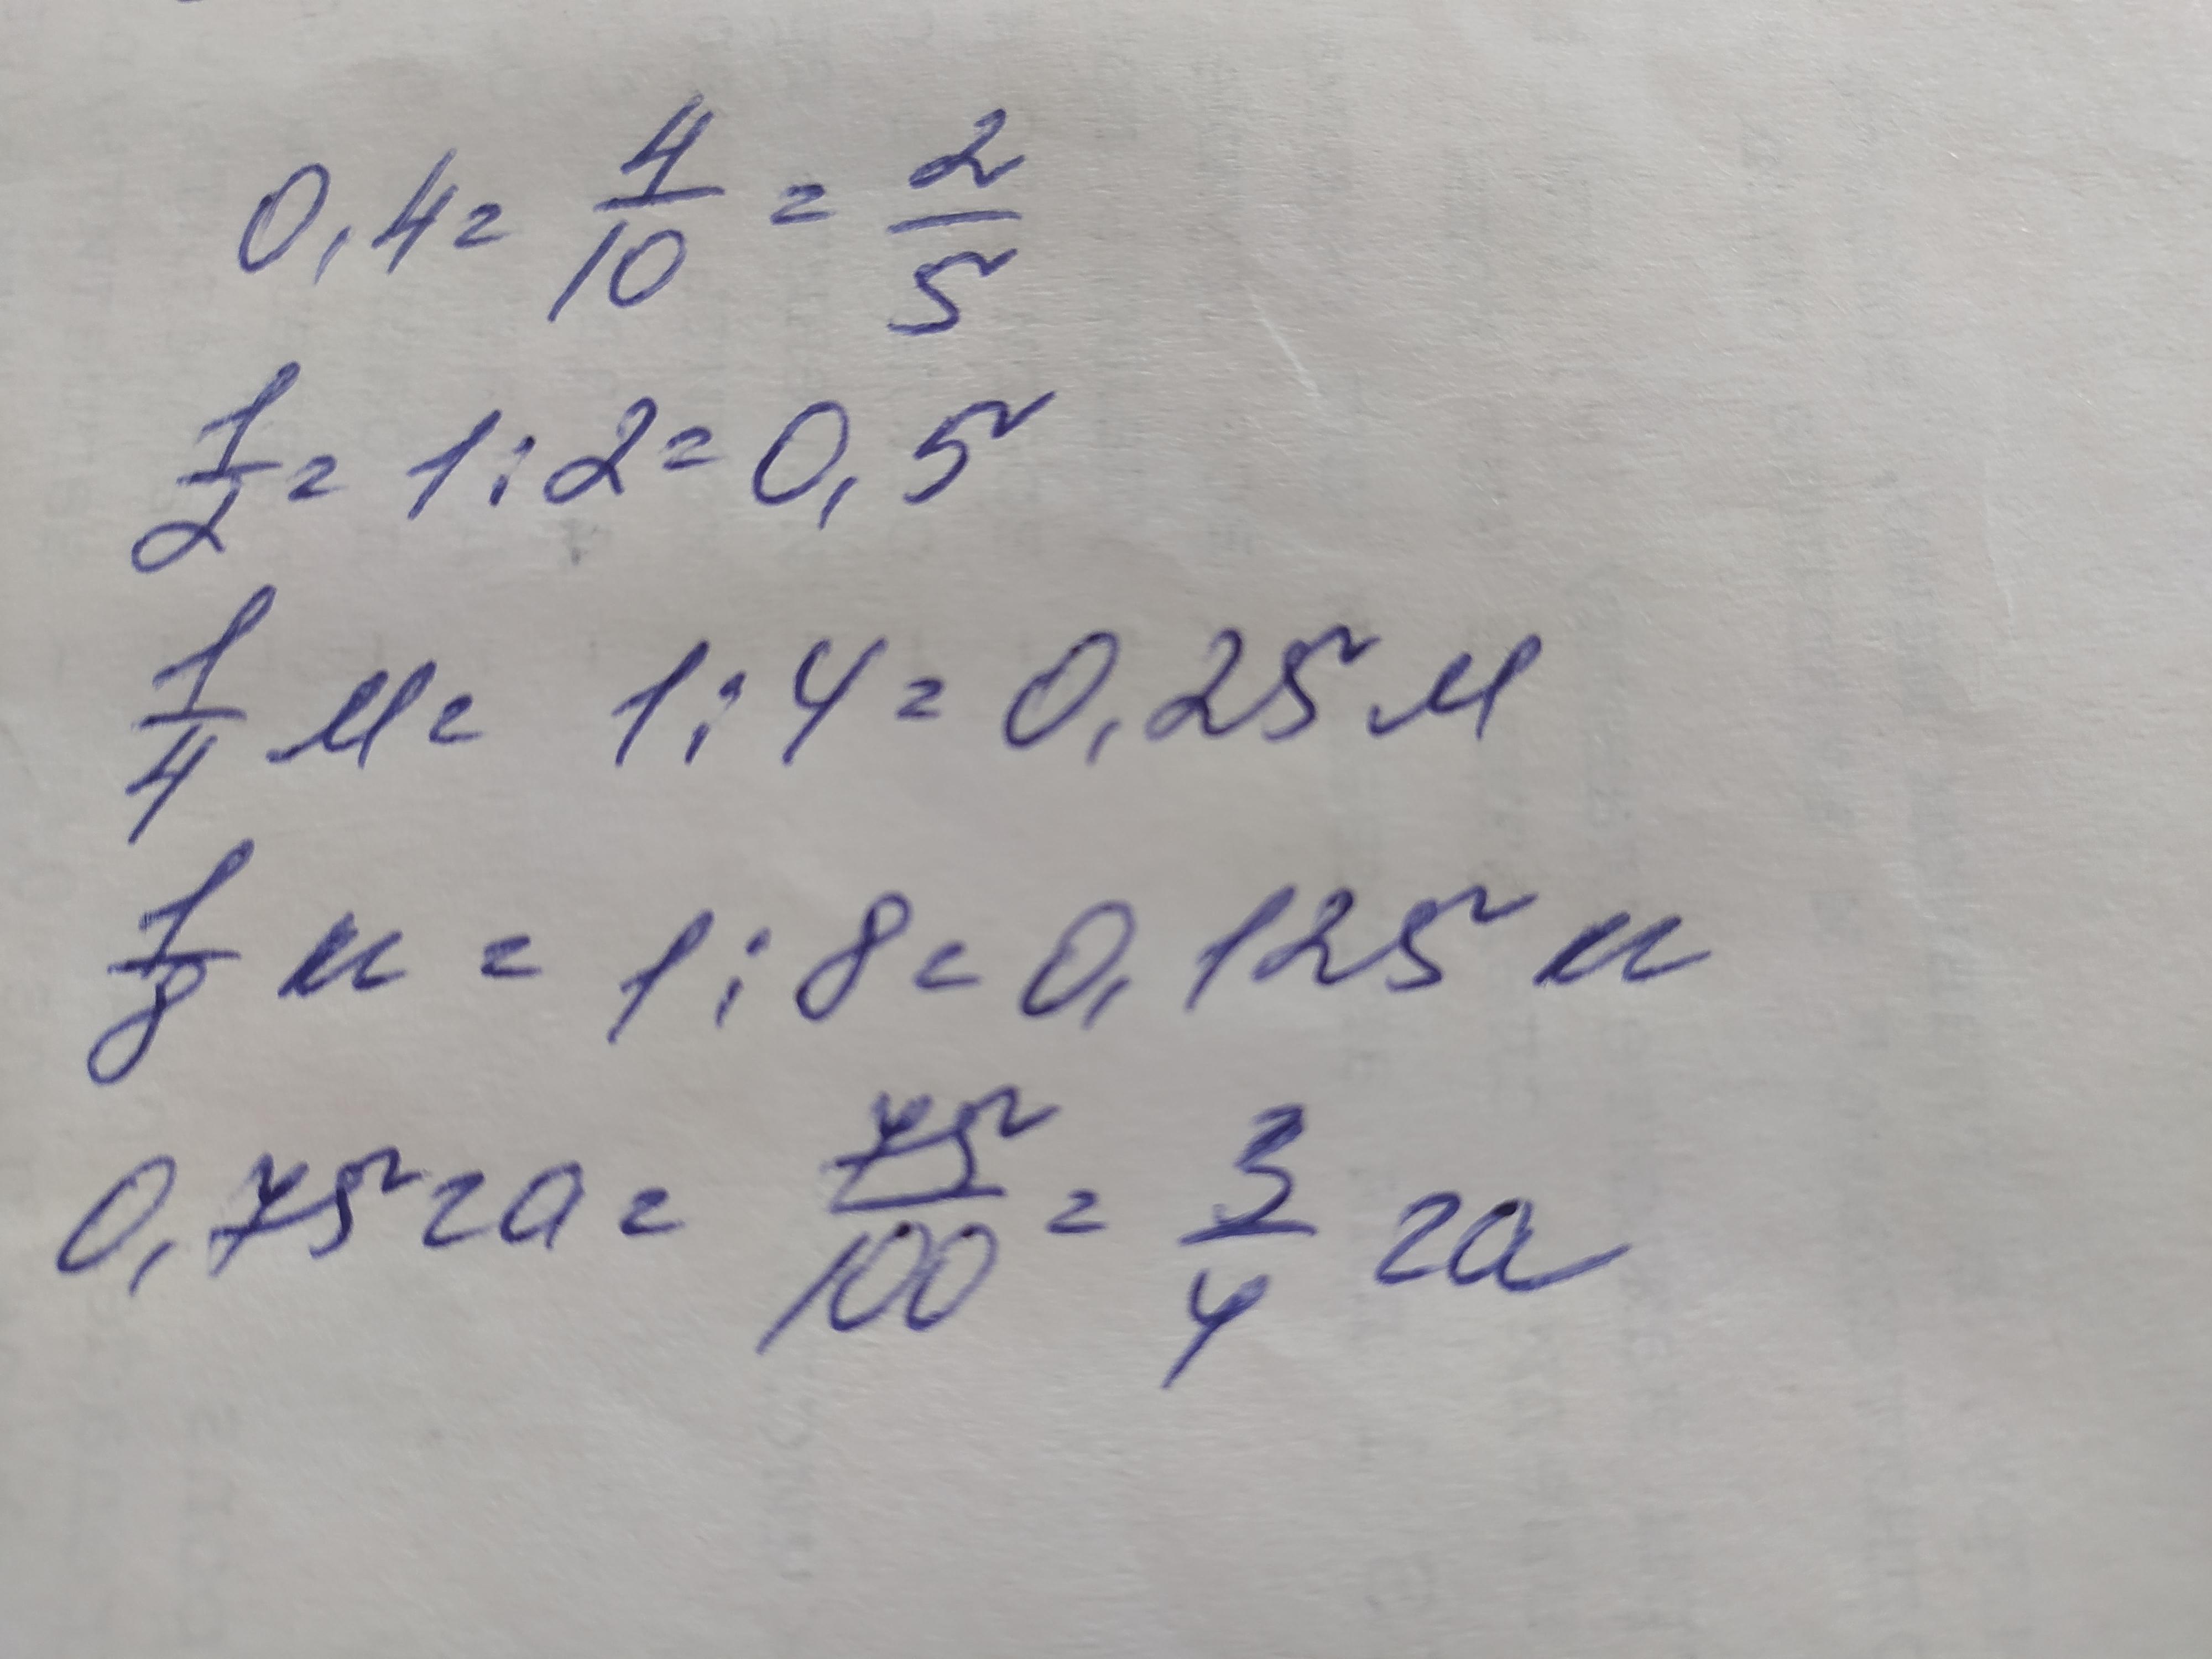 0,4 = 4/10 = 2/5
1/2 = 1 : 2 = 0,5
1/4 м = 1 : 4 = 0,25 м
1/8 и = 1 : 8 = 0,125 и
0,75 га = 75/100 = 3/4 га